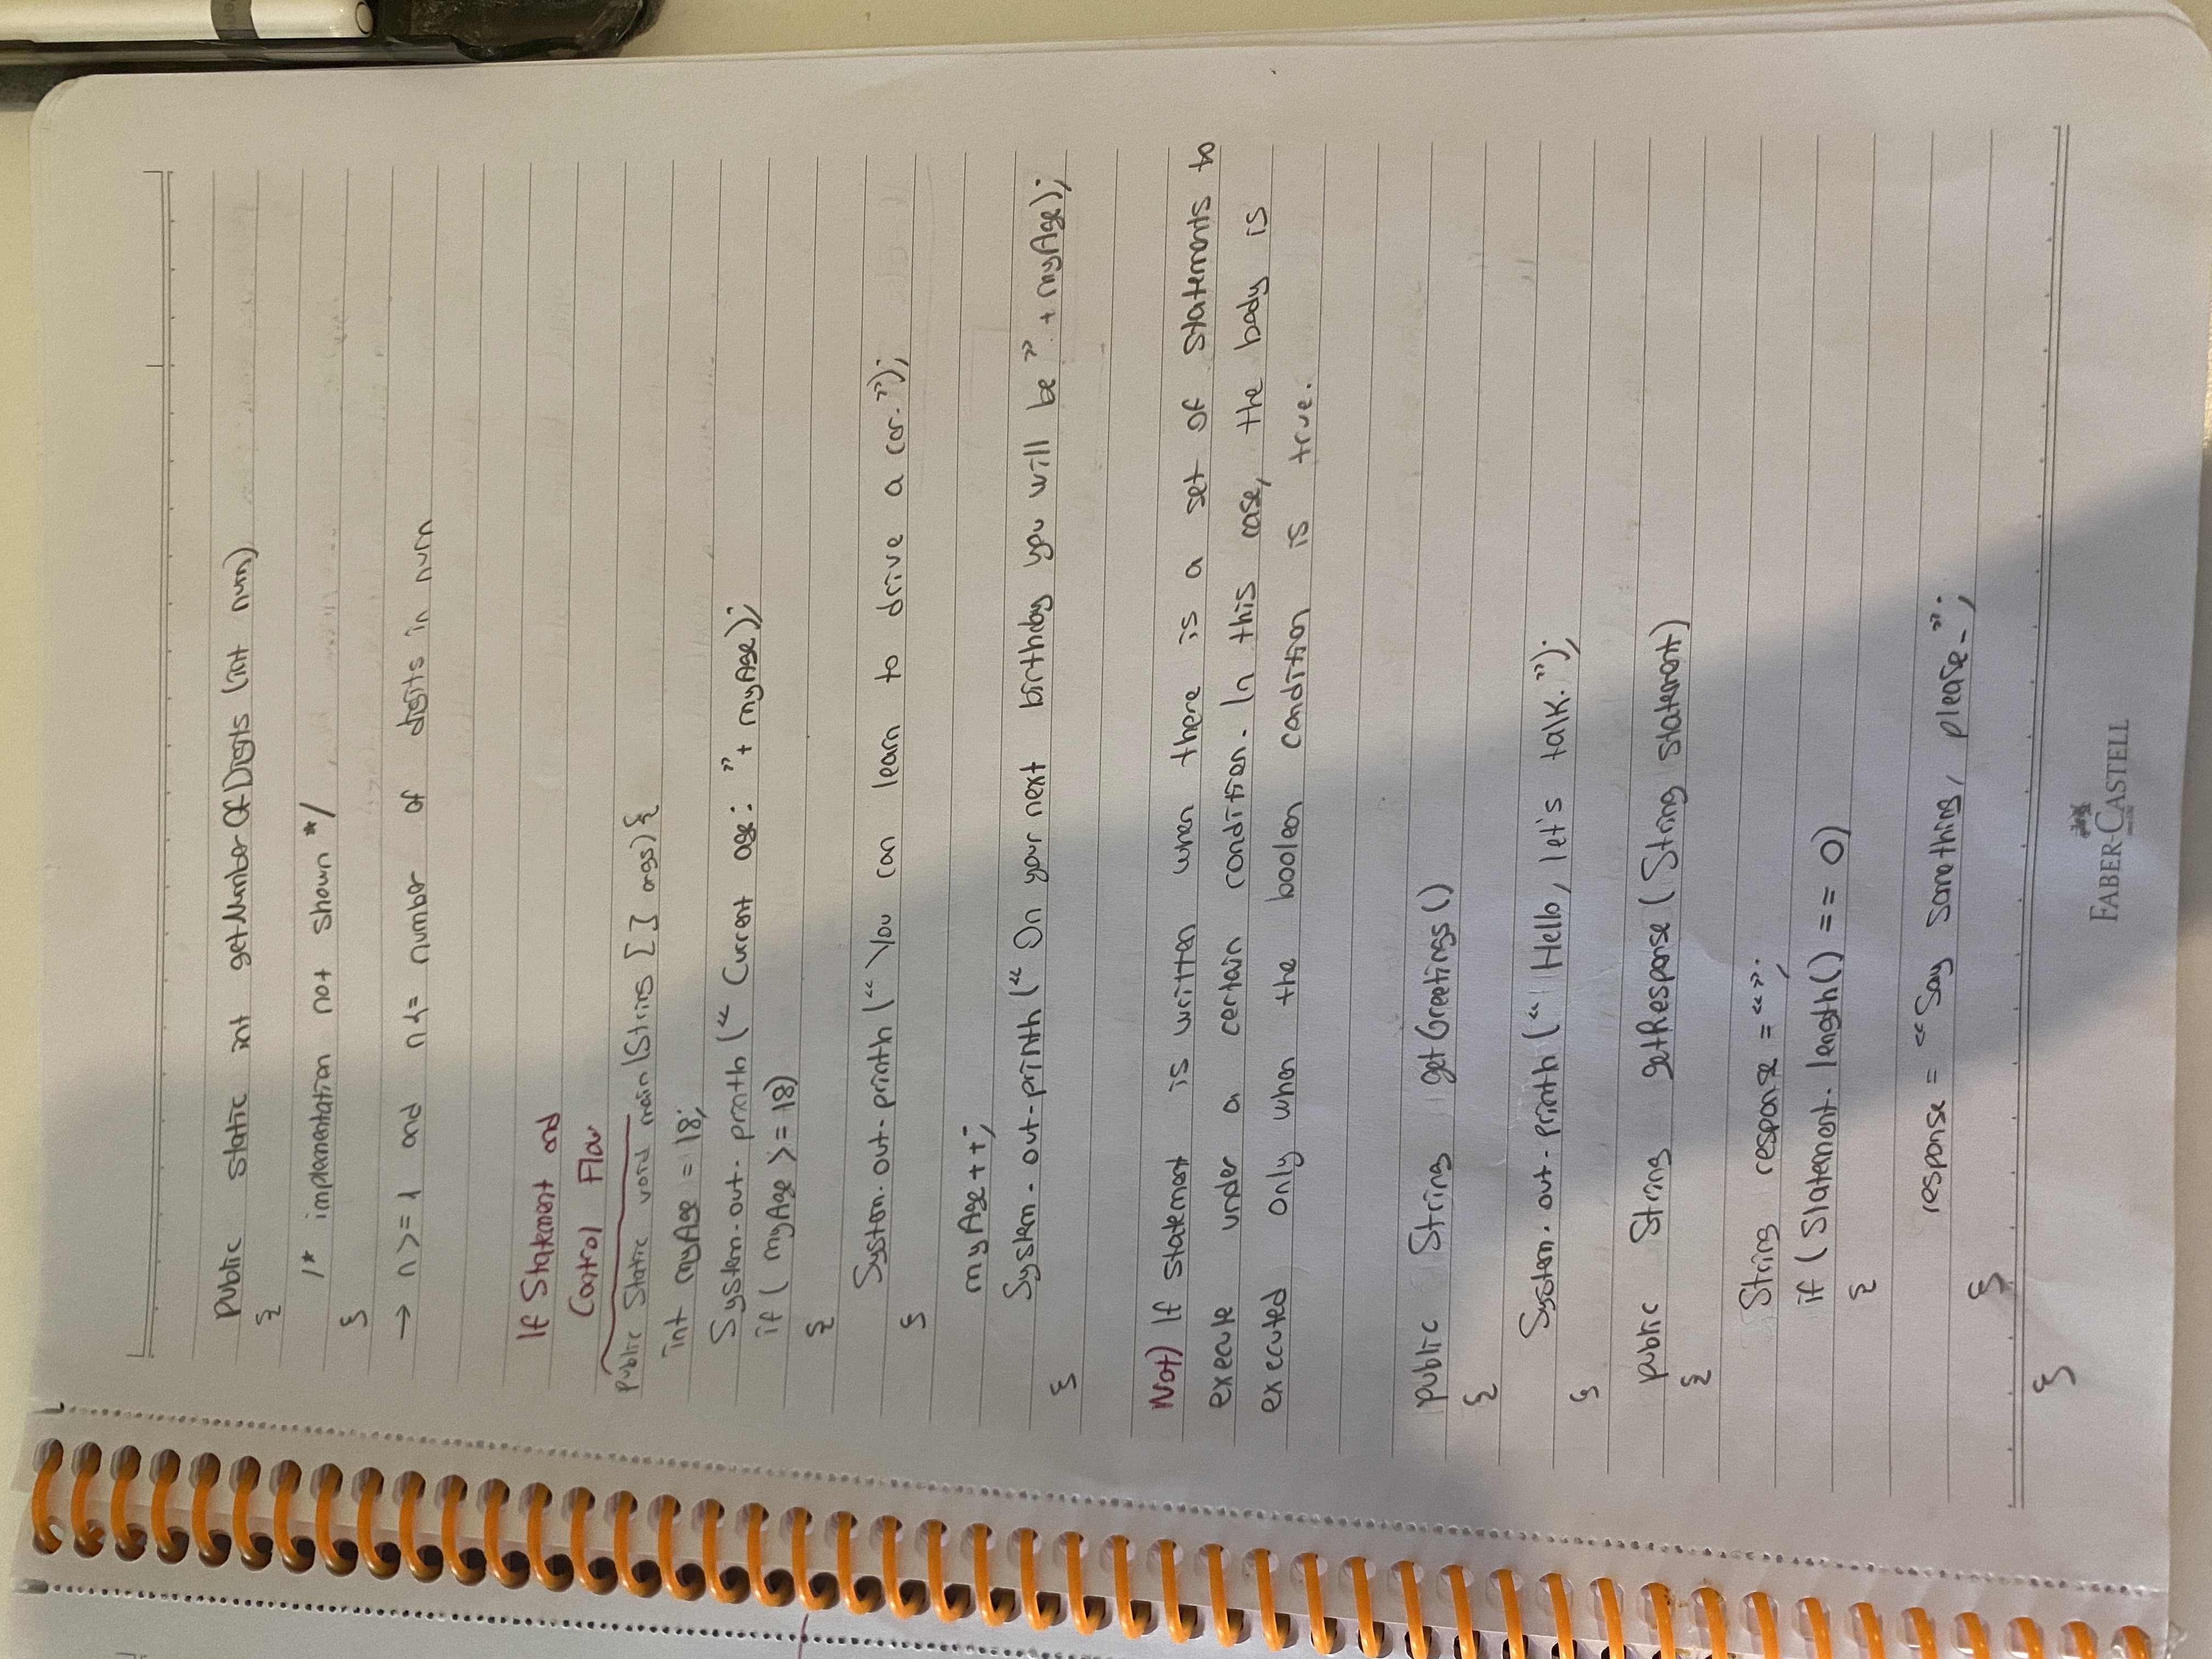 public static int getNumberOfDigits (int num)
{
/* implementation not shown */
}
→ n >= 1 and n <= number of digits in num
If Statement and
Control Flow
public static void main(String [] args) {
int myAge = 18;
System.out.println (" Current age: " + myAge);
if ( myAge >= 18)
{
System.out.println (" You can learn to drive a car. ");
}
myAge ++;
System.out.println (" On your next birthday you will be " + myAge);
}
Not) If statement is written when there is a set of statements to
execute under a certain condition. In this case, the body is
executed only when the boolean condition is true.
public String getGreetings ()
{
System.out.println (" Hello, let's talk. ");
}
public String getResponse ( String statement)
{
String response = " ";
if ( Statement. length() == 0)
{
response = " Say something, please. ";
}
}
FABER-CASTELL